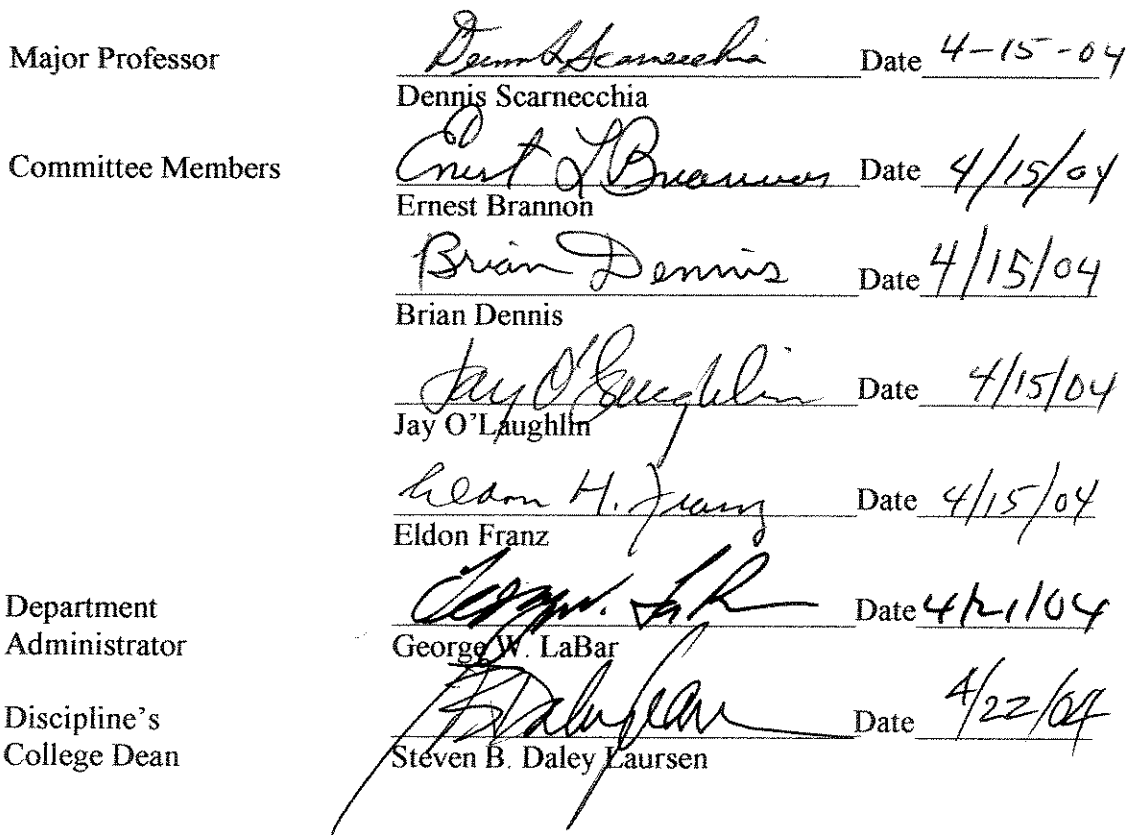 Major Professor Dennis Scarnecchia Date 4-15-04
Dennis Scarnecchia
Committee Members Ernest L Brannon Date 4/15/04
Ernest Brannon
Brian Dennis Date 4/15/04
Brian Dennis
Jay O'Laughlin Date 4/15/04
Jay O'Laughlin
Eldon H. Franz Date 4/15/04
Eldon Franz
Department Date 4/21/04
Administrator George W. LaBar
Discipline's Date 4/22/04
College Dean Steven B. Daley Laursen